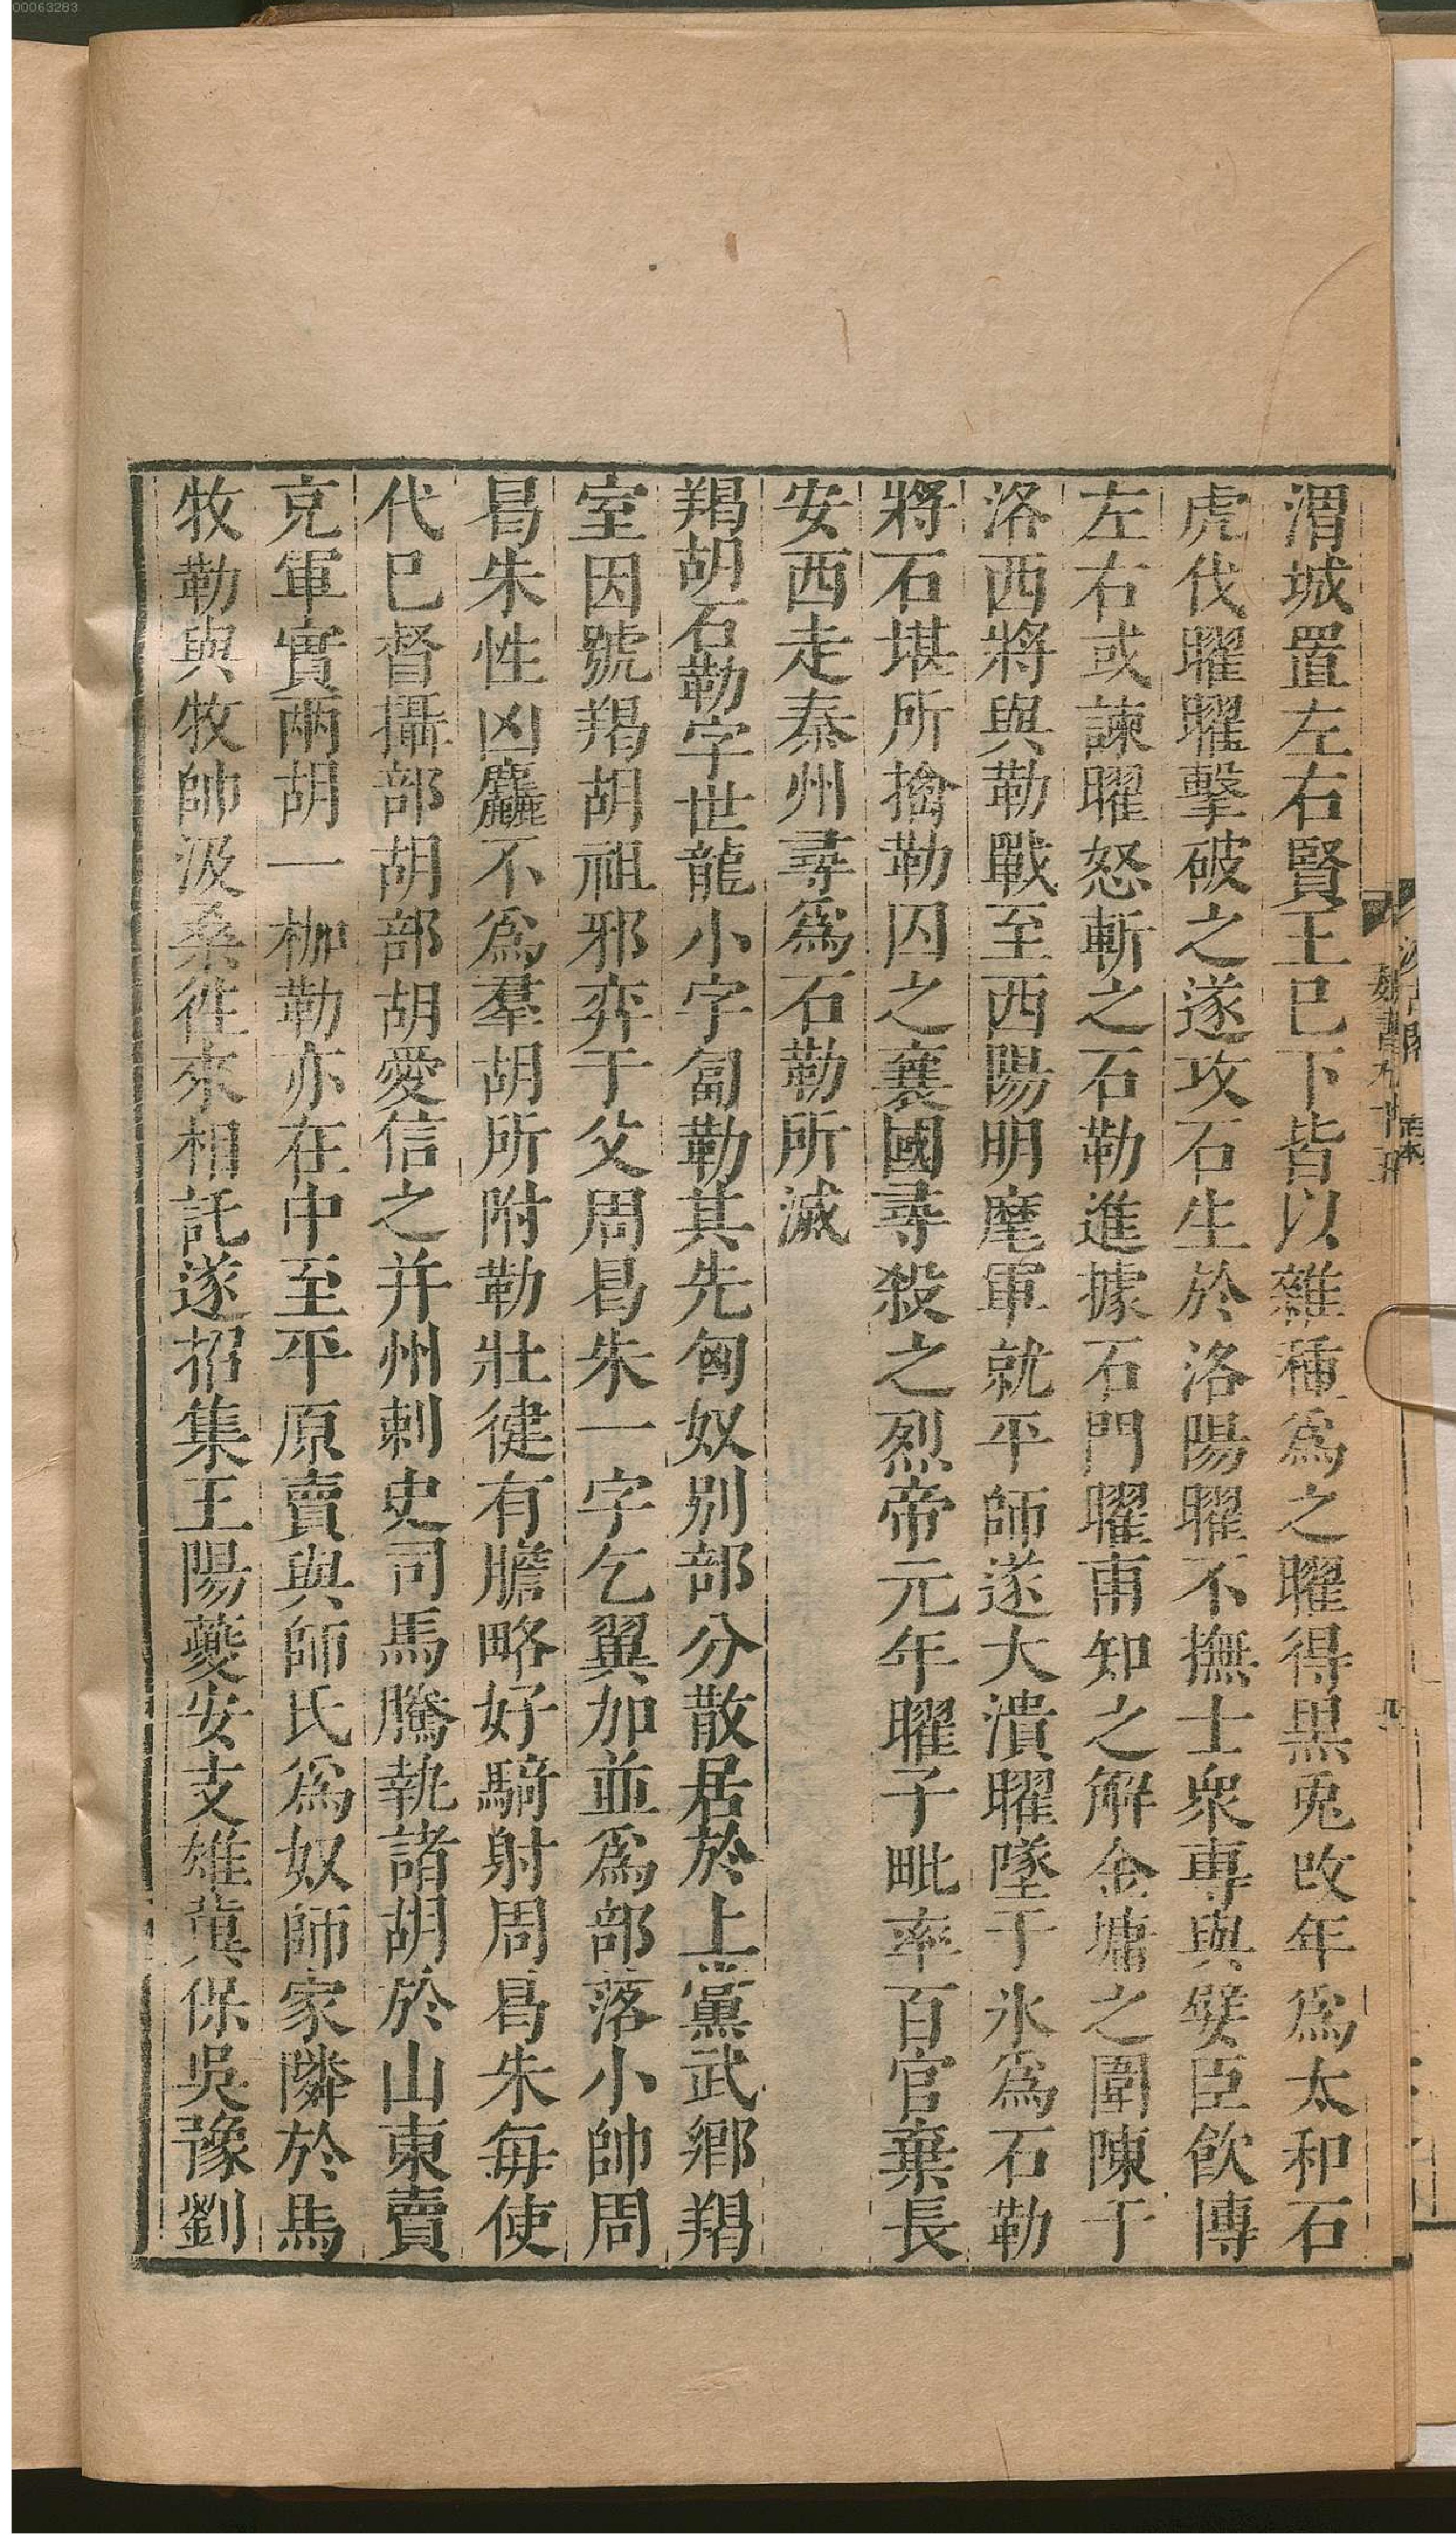 00063283
渭城置左右賢王已下皆以雜種爲之曜得黒兎改年爲太和石
虎伐曜曜擊破之遂攻石生於洛陽曜不撫士衆專與嬖臣飲博
左右或諫曜怒斬之石勒進據石門曜甫知之解金墉之圍陳于
洛西將與勒戰至西陽明麾軍就平師遂大潰曜墜于氷爲石勒
將石堪所擒勒囚之襄國尋殺之烈帝元年曜子毗率百官棄長
安西走秦州尋爲石勒所滅
羯胡石勒字世龍小字匐勒其先匈奴別部分散居於上黨武鄉羯
室因號羯胡祖邪弈于父周曷朱一字乞翼加並爲部落小帥周
曷朱性凶麤不爲羣胡所附勒壯健有膽略好騎射周曷朱每使
代已督攝部胡部胡愛信之并州刺史司馬騰執諸胡於山東賣
克軍實兩胡一枷勒亦在中至平原賣與師氏爲奴師家隣於馬
牧勒與牧帥汲桑徃來相託遂招集王陽夔安支雄冀保吳豫劉